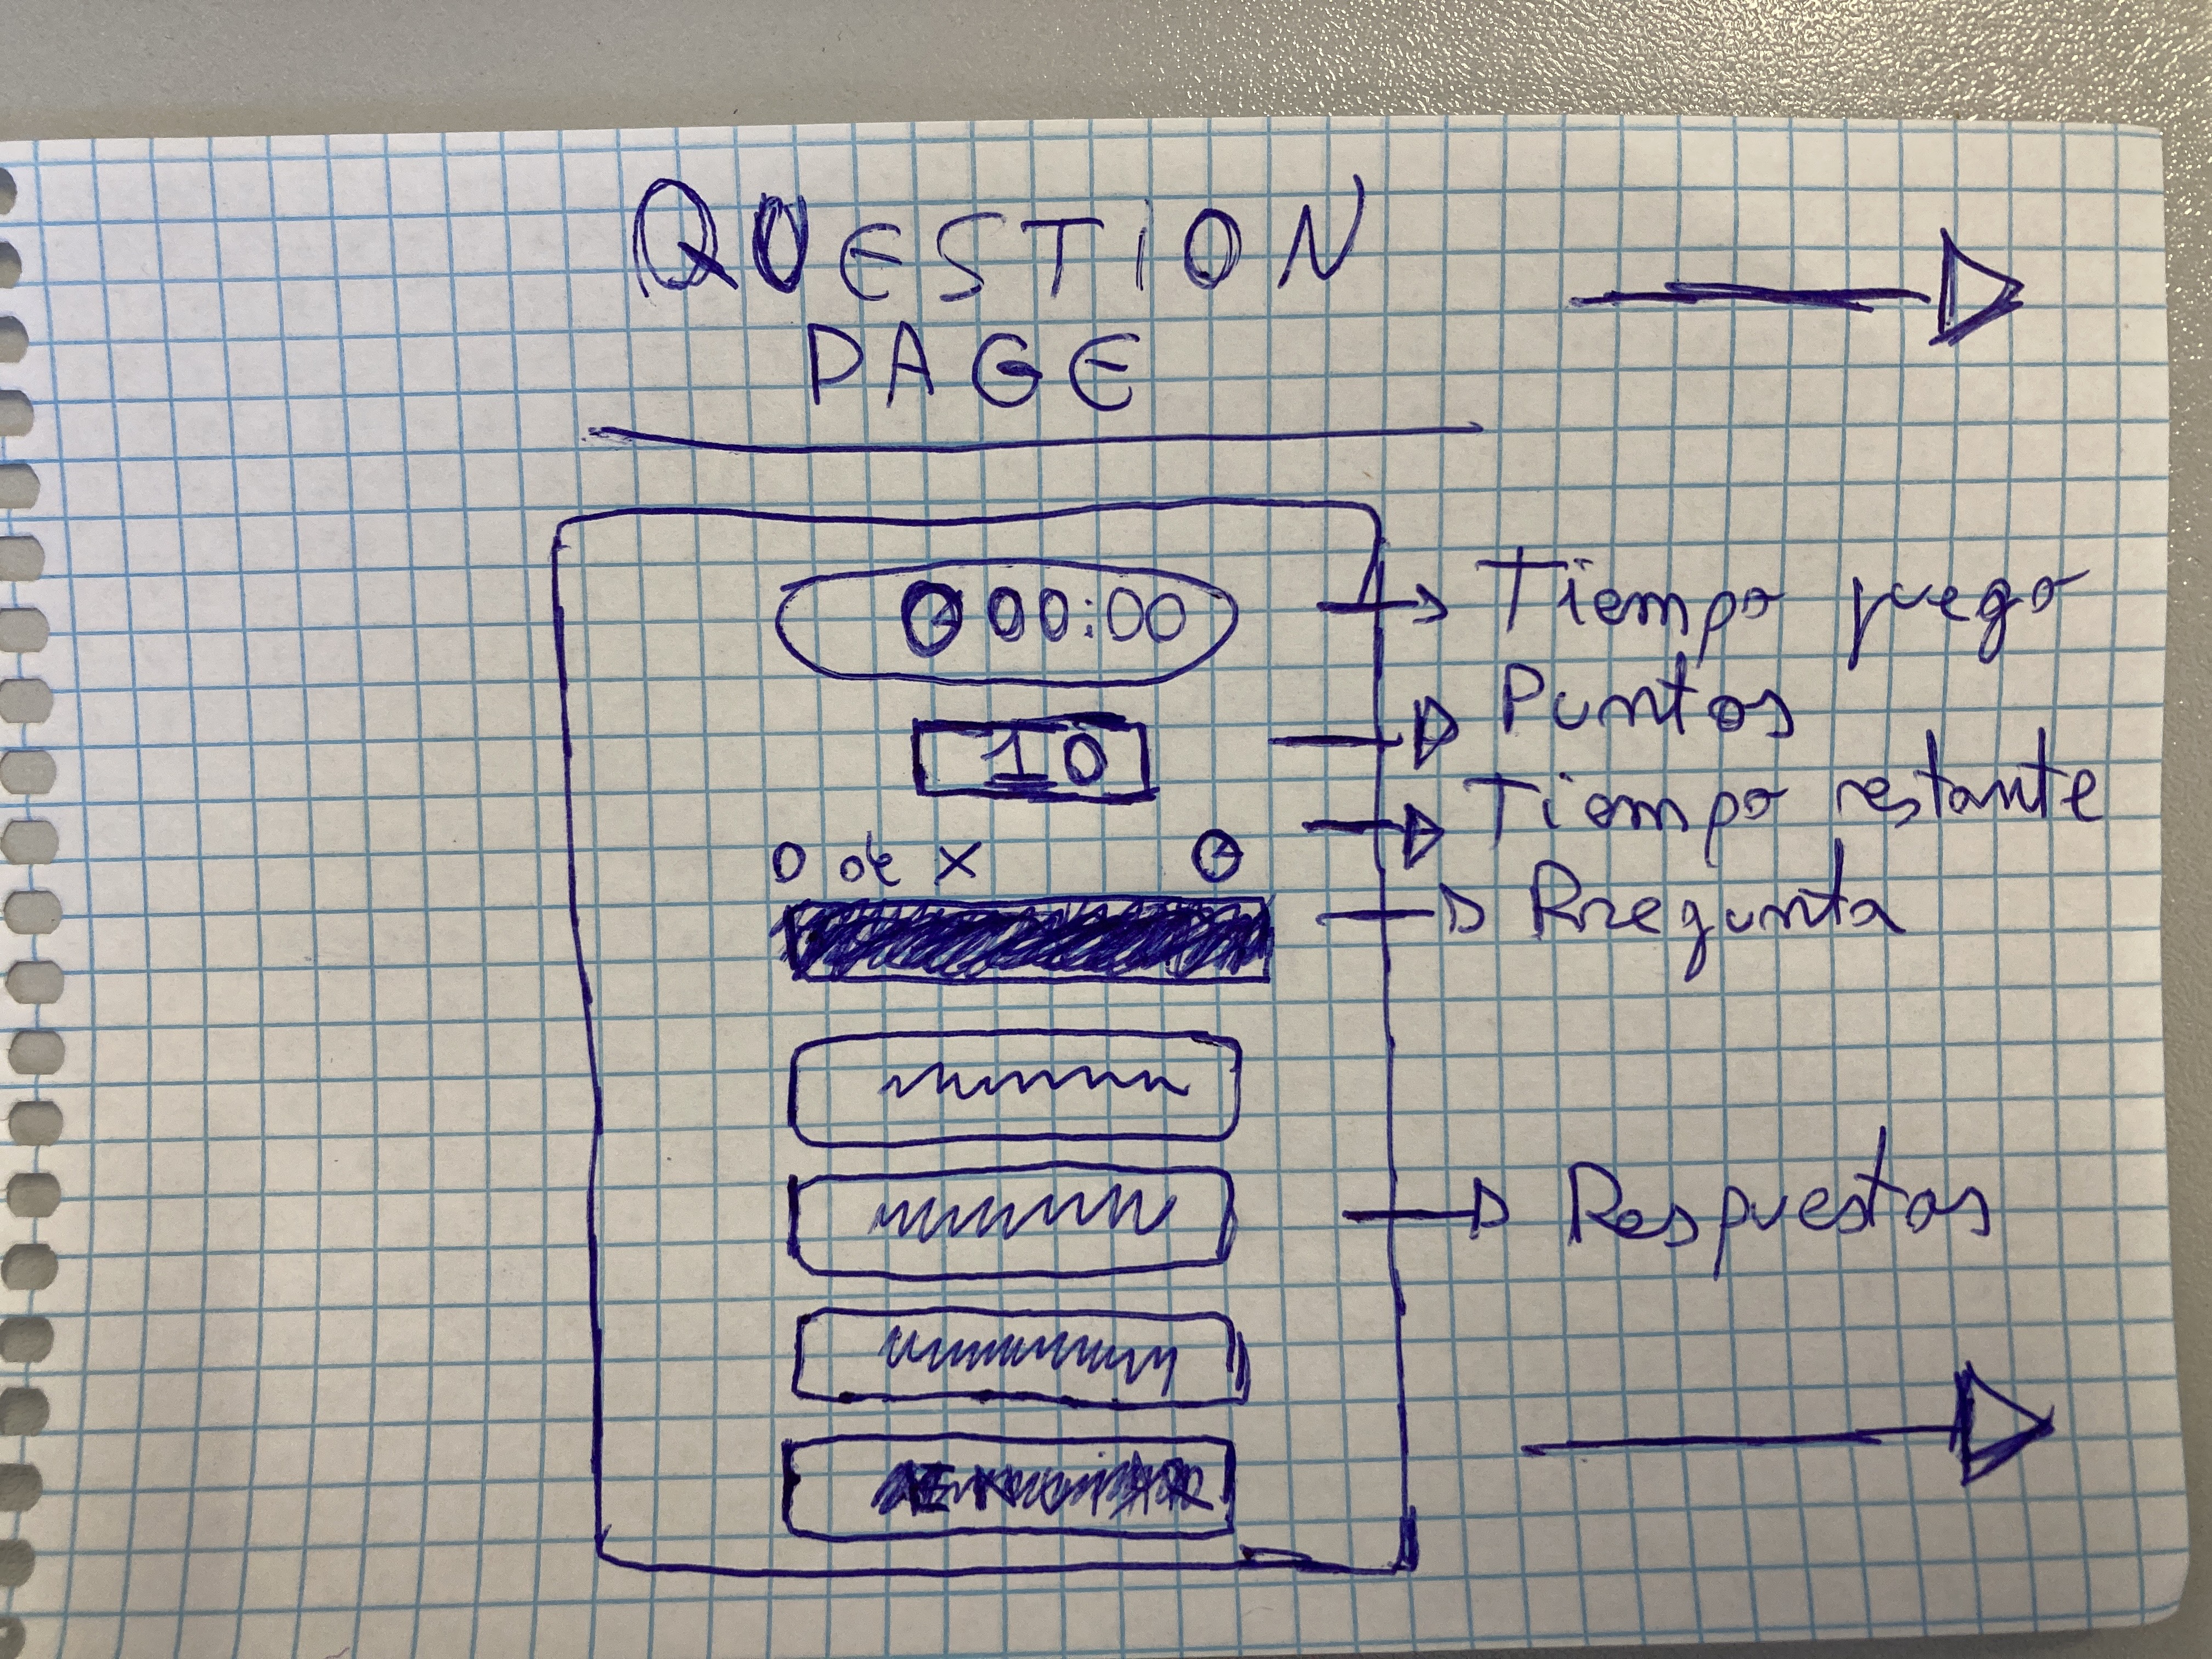 QUESTION
PAGE
00:00
Tiempo juego
10
Puntos
0 de X
Tiempo restante
Pregunta
Respuestas